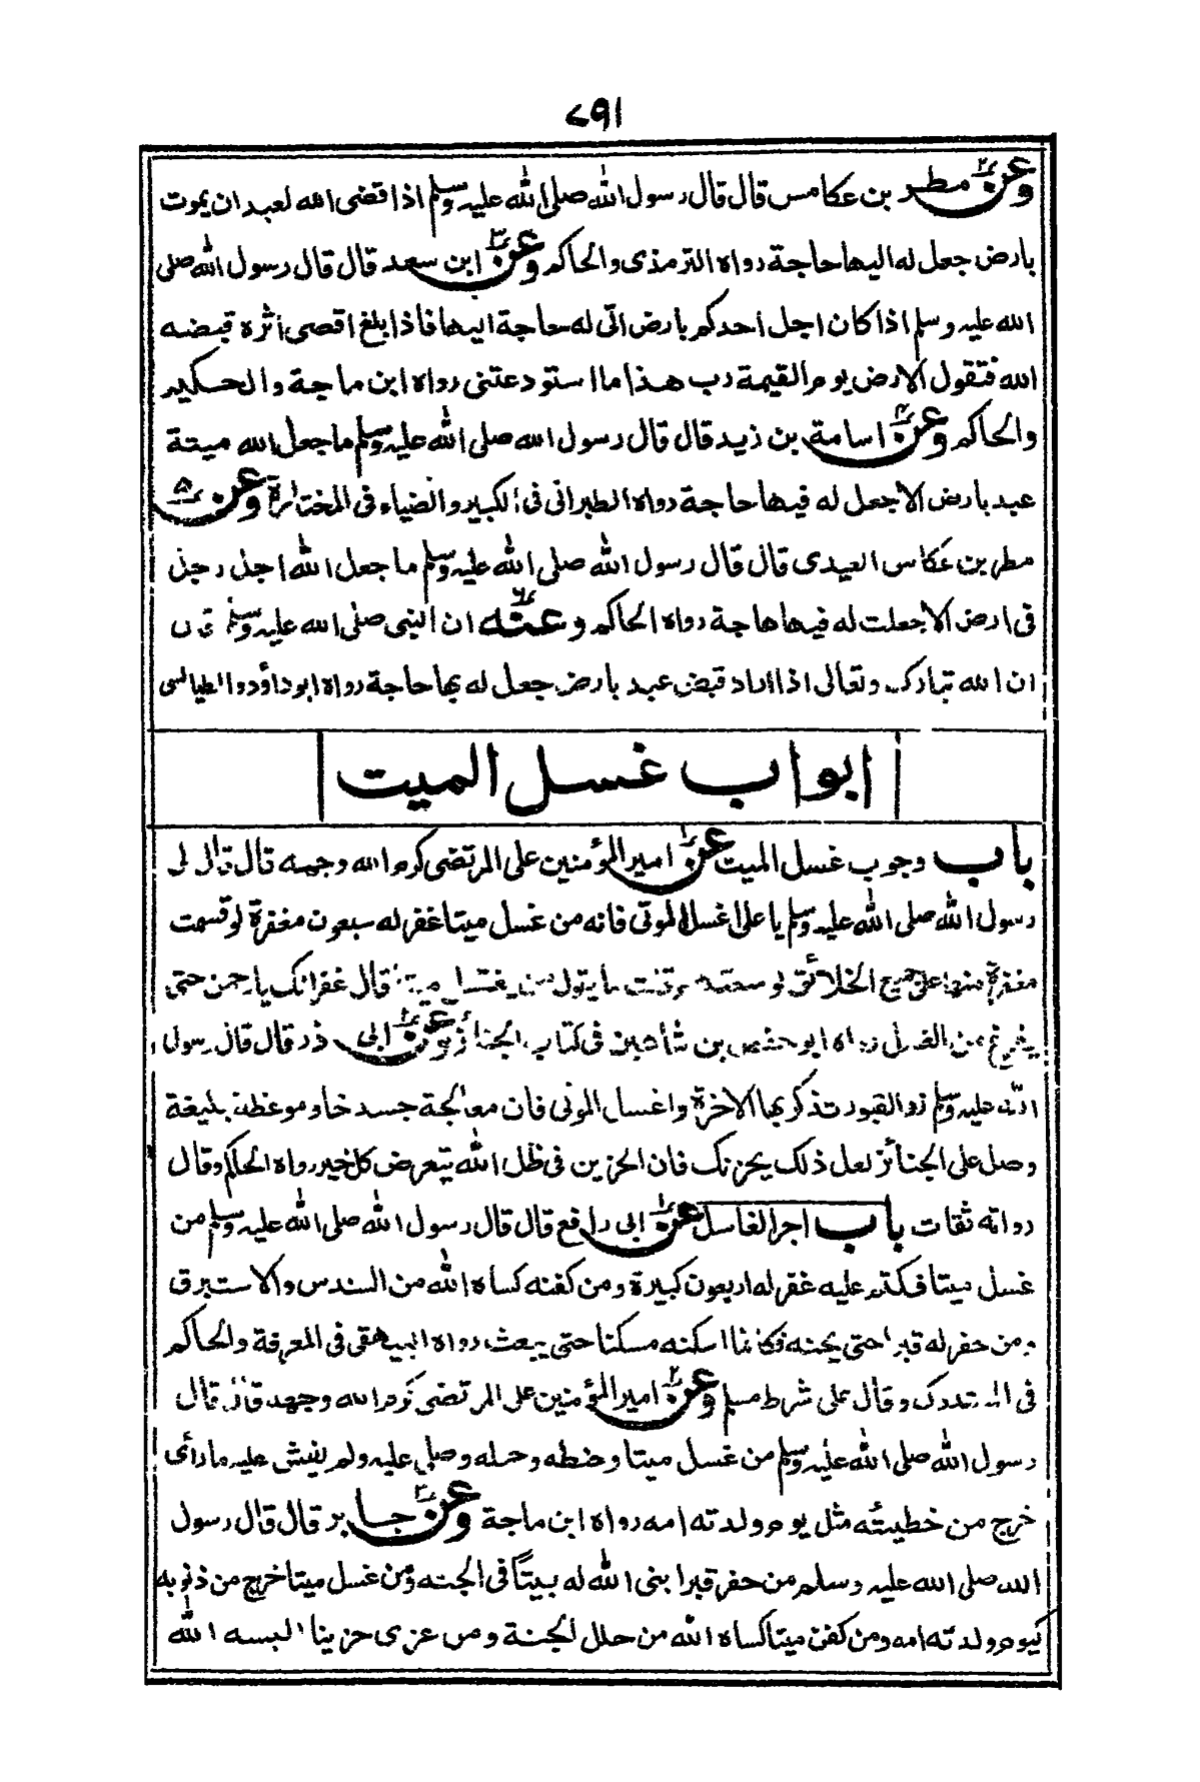 ٧٩١
وعن٢ مطر بن عكامس قال قال رسول الله صلى الله عليه وسلم اذا قضى الله لعبد ان يموت
بارض جعل له اليها حاجة رواه الترمذى والحاكم وعن٣ ابن سعد قال قال رسول الله صلى
الله عليه وسلم اذا كان اجل احدكم بارض اتى له حاجة اليها فاذا بلغ اقصى اثره قبضه
الله فتقول الارض يوم القيمة رب هذا ما استودعتنى رواه ابن ماجة والحكيم
والحاكم وعن٤ اسامة بن زيد قال قال رسول الله صلى الله عليه وسلم ما جعل الله ميتة
عبد بارض الا جعل له فيها حاجة رواه الطبرانى فى الكبير والضياء فى المختارة وعن٥
مطر بن عكاس العيدى قال قال رسول الله صلى الله عليه وسلم ما جعل الله اجل رجل
فى ارض الا جعلت له فيها حاجة رواه الحاكم وعنه٦ ان النبى صلى الله عليه وسلم قال
ان الله تبارك وتعالى اذا اراد قبض عبد بارض جعل له بها حاجة رواه ابو داؤد والطيالسى
ابواب غسل الميت
باب وجوب غسل الميت عن١ امير المؤمنين على المرتضى كرم الله وجهه قال قال لى
رسول الله صلى الله عليه وسلم يا على اغسل الموتى فانه من غسل ميتا غفر له سبعون مغفرة لو قسمت
مغفرة منها على جميع الخلائق لو سعتهم قلت ما يقول من يغتسل ميتا قال غفرانك يا رحمن حتى
يفرغ من الغسل رواه ابو حفص بن شاهين فى كتاب الجنائز وعن٢ ابى ذر قال قال رسول
الله عليه وسلم زوالقبور تذكر بها الاخرة واغسل الموتى فان معالجة جسد خاو موعظة بليغة
وصل على الجنائز لعل ذلك يحزنك فان الحزين فى ظل الله يتعرض كل خير رواه الحاكم وقال
رواته ثقات باب اجر الغاسل عن١ ابى رافع قال قال رسول الله صلى الله عليه وسلم من
غسل ميتا فكتم عليه غفر له اربعون كبيرة ومن كفنه كساه الله من السندس والاستبرق
ومن حفر له قبرا حتى يجنه فكانما اسكنه مسكنا حتى يبعث رواه البيهقى فى المعرفة والحاكم
فى المستدرك وقال على شرط مسلم وعن٢ امير المؤمنين على المرتضى كرم الله وجهه قال قال
رسول الله صلى الله عليه وسلم من غسل ميتا وحنطه وحمله وصلى عليه ولم يفش عليه ما رأى
خرج من خطيئته مثل يوم ولدته امه رواه ابن ماجة وعن٣ جابر قال قال رسول
الله صلى الله عليه وسلم من حفر قبرا بنى الله له بيتًا فى الجنه ومن غسل ميتا خرج من ذنوبه
كيوم ولدته امه ومن كفن ميتا كساه الله من حلل الجنة ومن عزى حزينا البسه الله